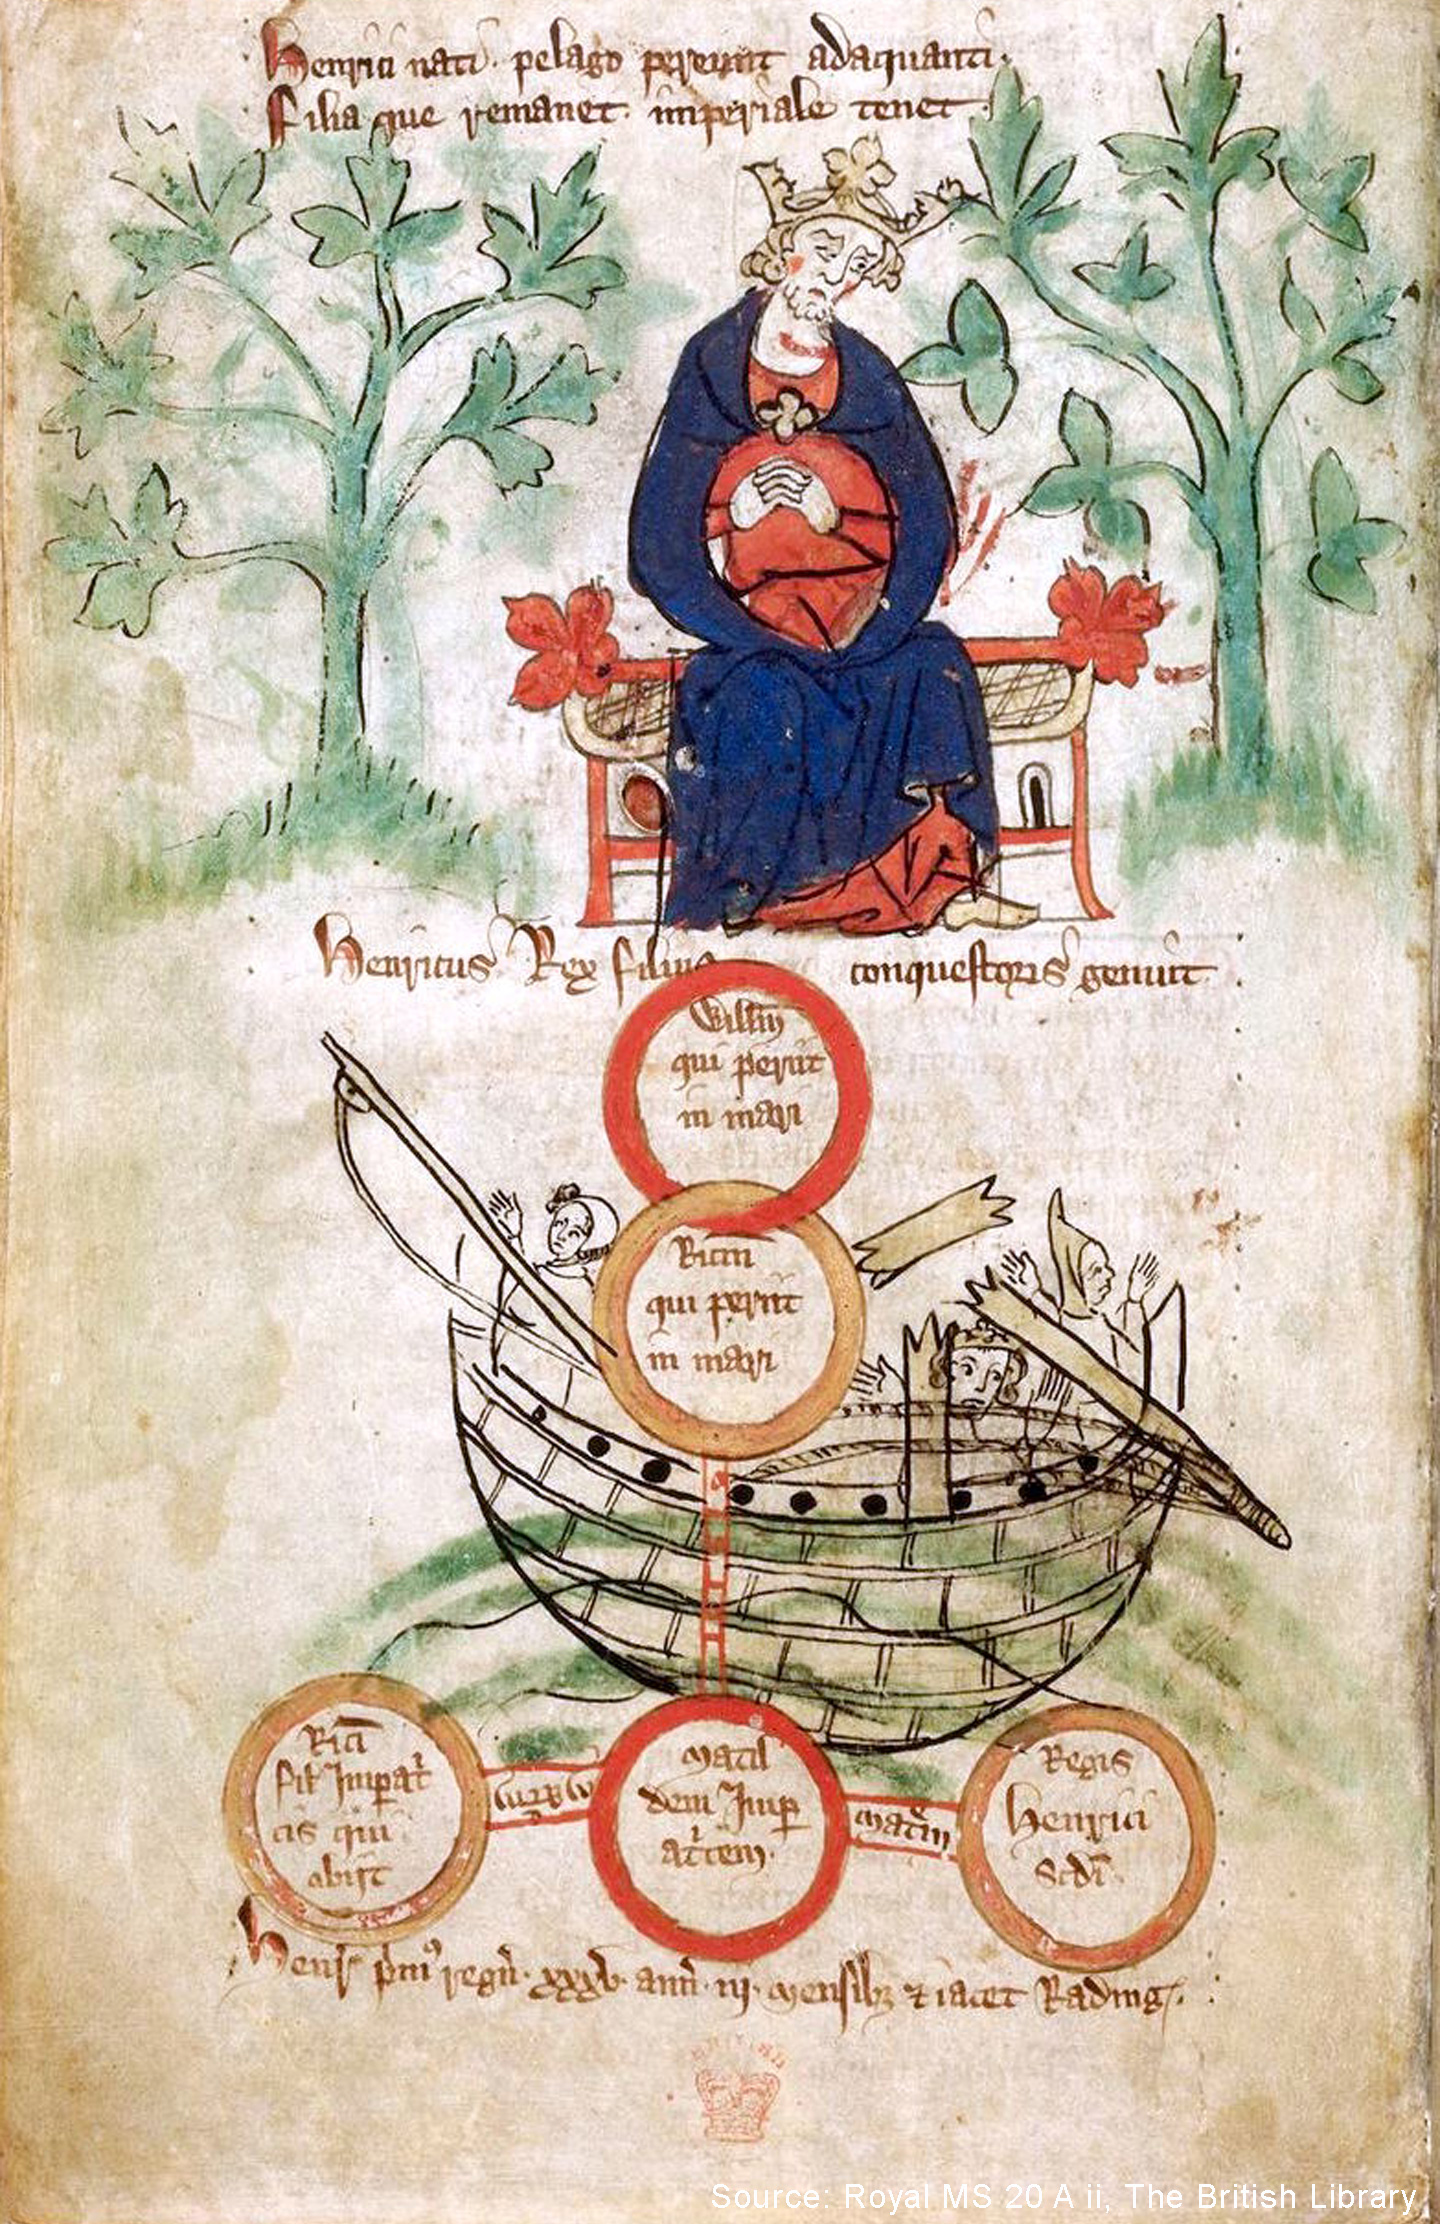 Henrici nati · pelago pereunt adaquanti ·
Filia que remanet · imperiale tenet ·
Henricus Rex filius conquestoris genuit
Willm
qui periit
in mari
Ricm
qui periit
in mari
Rici
fil Imperat
cis qui
obiit
Matil
dem Imp
atcem
matrem
Regis
Henrici
Scdi
Henr pm regn · xxxv · ann · iij · mensib; ⁊ iacet Rading
BRITISH
Source: Royal MS 20 A ii, The British Library